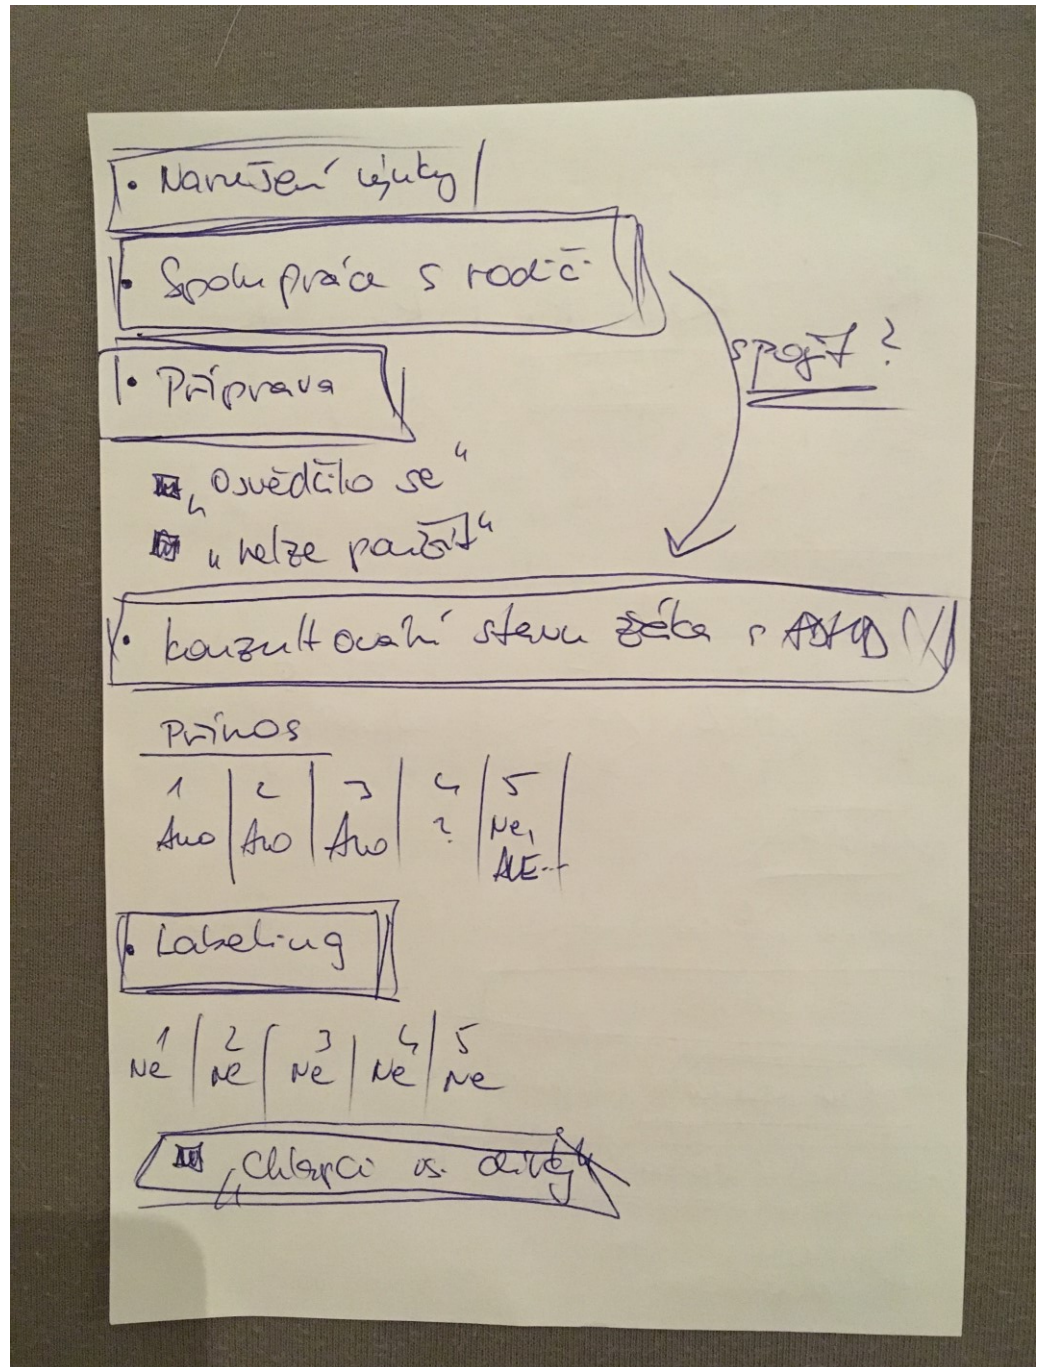 • Narušení výuky
• Spolupráce s rodič.
spojit?
• Příprava
„Osvědčilo se“
„nelze použít“
• konzultování stavu žáka s ADHD
Přínos
1 | 2 | 3 | 4 | 5
Ano | Ano | Ano | ? | Ne,
ALE...
• Labeling
1 | 2 | 3 | 4 | 5
Ne | Ne | Ne | Ne | Ne
„Chlapci vs. dívky“